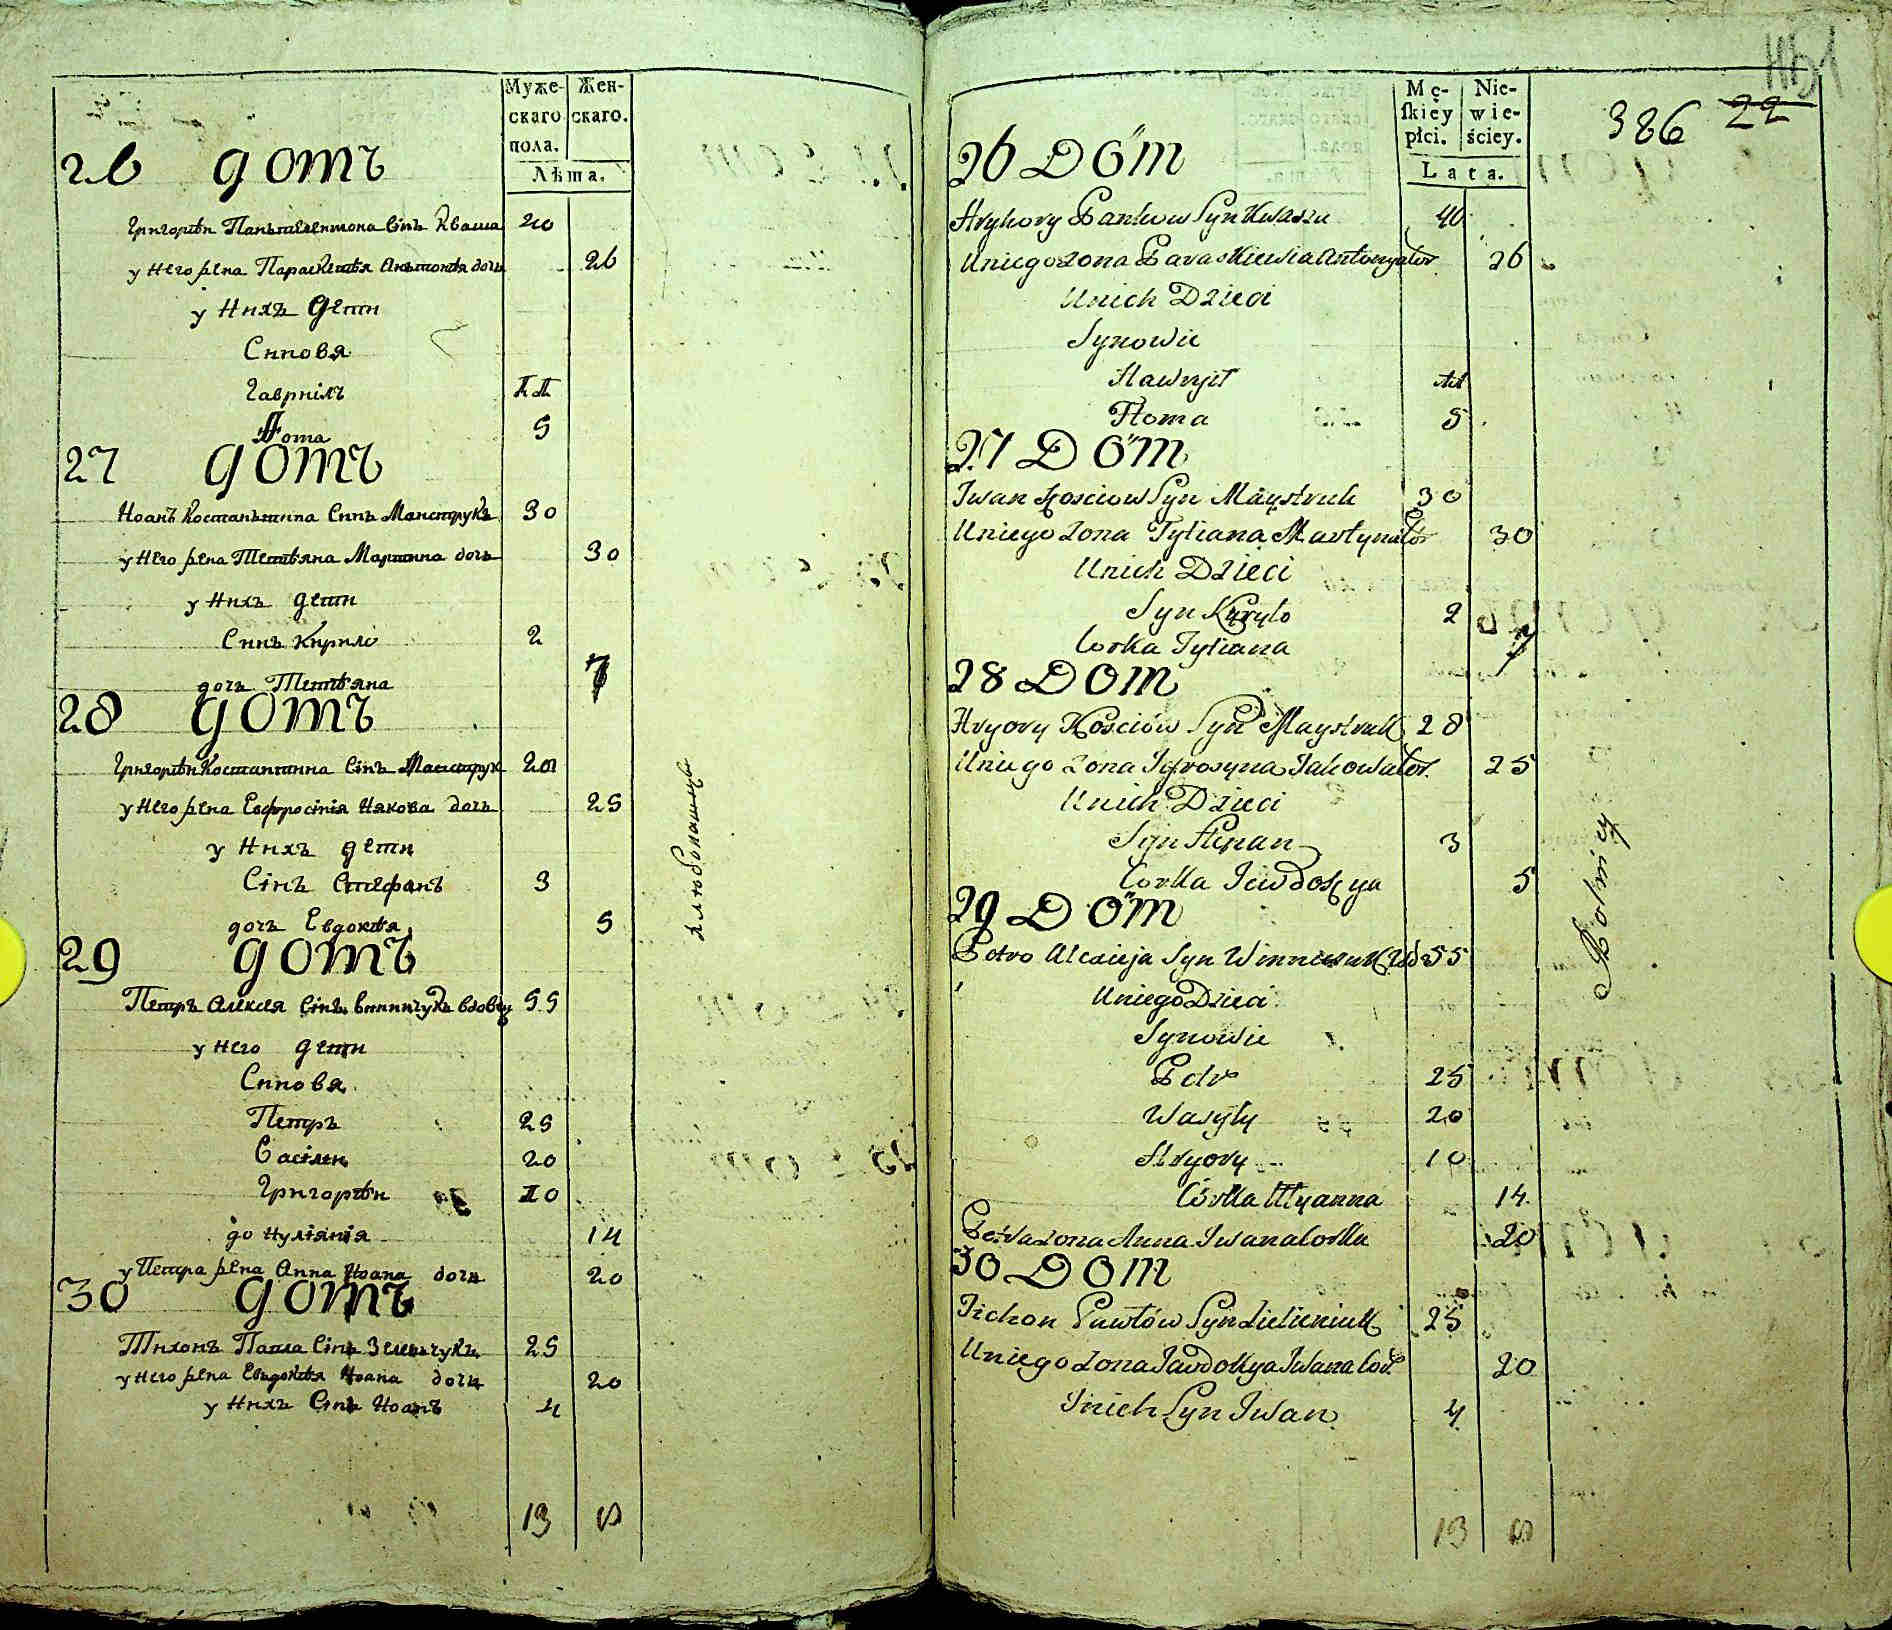 Муже-
скаго
пола.
Жен-
скаго.
Лѣта.
26 домъ
Григорѣй Панътелеимона Сінъ Кваша 40
у Него жена Параскевѣя Анътонѣя дочь 26
у Нихъ дети
Синовя
Гавриілъ 11
Фома 5
27 домъ
Иоанъ Костанътина Синъ Маиструкъ 30
у Него жена Тетѣяна Мартина дочь 30
у Нихъ дети
Синъ Кирило 2
дочь Тетѣяна 7
28 домъ
Григорѣй Костантина Сінъ Маиструк 28
у Него жена Евфросінія Иякова дочь 25
у Нихъ дети
Сінъ Стефанъ 3
дочь Евдокѣя 5
29 домъ
Петръ Алексея Сінъ винничукъ вдовец 55
у Него дети
Синовя
Петръ 25
Васілеи 20
Григорѣи 10
до Иуліянія 14
у Петра жена Анна Иоана дочь 20
30 домъ
Тихонъ Павла Сінъ 25
у Него жена Евдокѣя Иоана дочь 20
у Нихъ Сінъ Иоанъ 4
13 8
Mę-
skiey
płci.
Nie-
wie-
ściey.
Lata.
386 22
26 Dóm
Hryhory Pańkow Syn Kwasza 40
Uniego Zona Paraskiewia Antonya Cor. 26
Unich Dzieci
Synowie
Hawryił 11
Homa 5
27 Dóm
Iwan Kosciow Syn Maystruk 30
Uniego Zona Tytiana Martyna Cór 30
Unich Dzieci
Syn Kyryło 2
Corka Tytiana 7
28 Dom
Hryory Kosciów Syn Maystruk 28
Uniego Zona Jefrosyna Jakowa Cor. 25
Unich Dzieci
Syn Stepan 3
Corka Jewdokya 5
29 Dóm
Petro Alexieja Syn Winniczuk Wdo 55
Uniego Dzieci
Synowie
Petr 25
Wasyly 20
Hryory 10
Córka Ulyanna 14
Petra Zona Anna Iwana Corka 20
30 Dom
Tichon Pawłów Syn 25
Uniego Zona Jawdokya Iwana Cor. 20
Unich Syn Iwan 4
Rolnicy
13 8